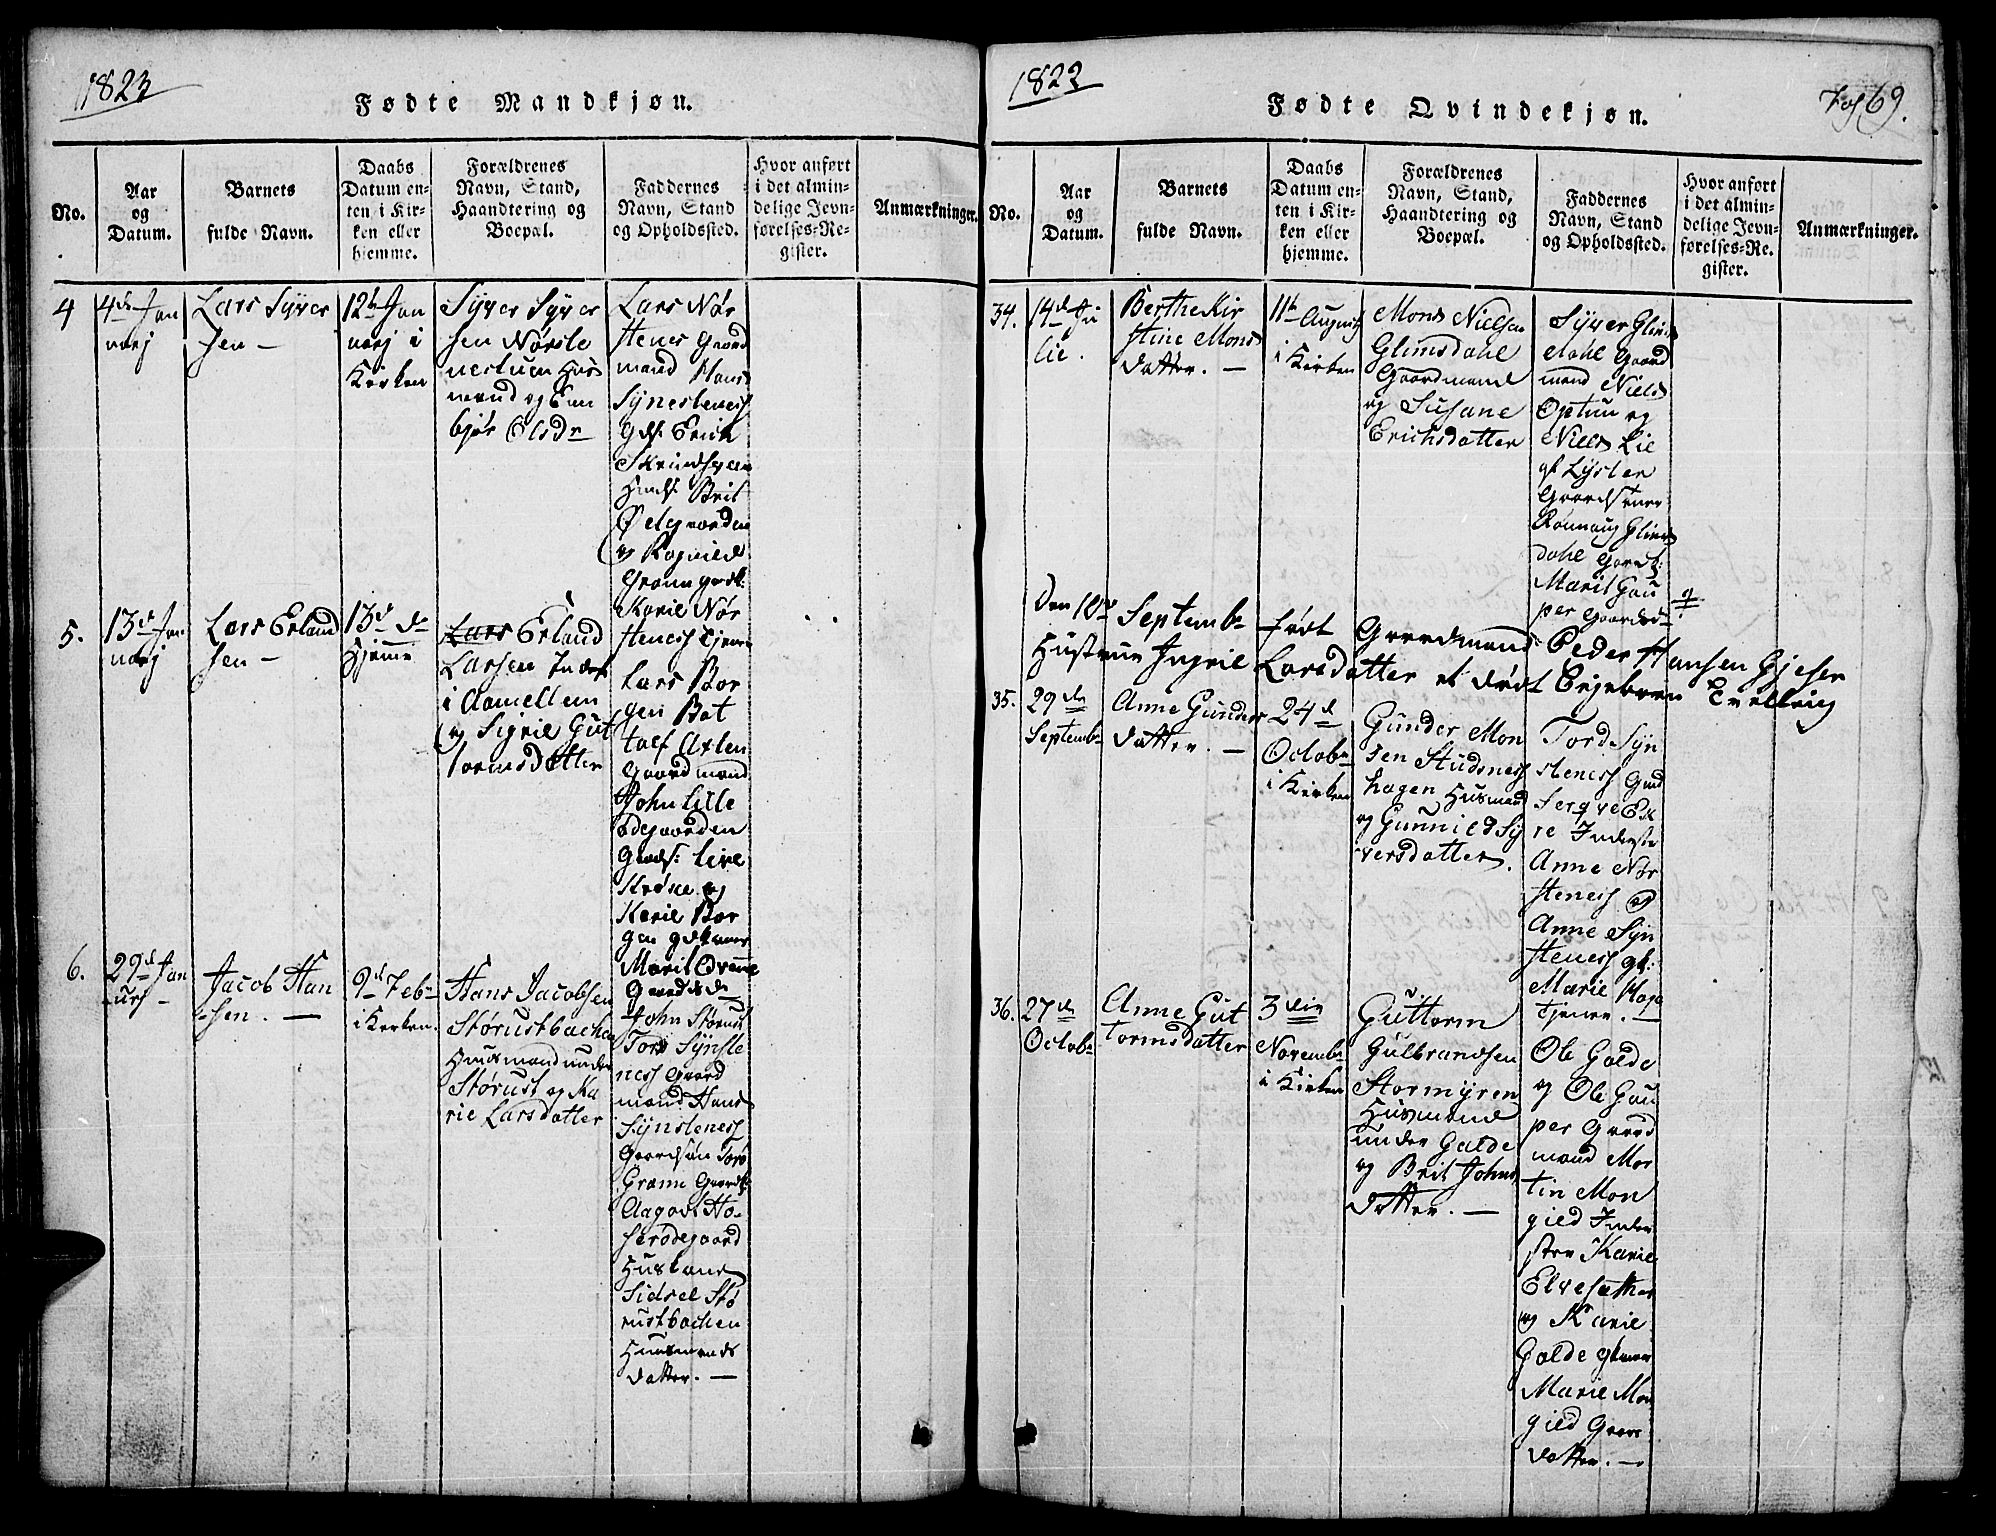 1823
Fødte Mandkjøn.
No.
Aar
og
Datum.
Barnets
fulde Navn.
Daabs
Datum en-
ten i Kir-
ken eller
hjemme.
Forældrenes
Navn, Stand,
Haandtering og
Boepæl.
Faddernes
Navn, Stand
og Opholdssted.
Hvor anført
i det almin-
delige Jevn-
førelses-Re-
gister.
Anmærkninger.
4
4de Jan
uarj
Lars Syver
sen —
12te Jan
uarj i
Kirken
Syver Syver
sen Nørste
nestuen Hus
mand og Em
bjør Olsdr
Lars Nør
stenes Gaard
mand Hans
Synsteness
Erick
Brit
Ødegaarden
og Rognild
Karie Nør
steness
5.
13de Jan
uarj
Lars Erland
sen —
13d do
Hjeme
Lars Erland
Larsen
i Aamellem
og Sigrie Gut
tormsdatter
Lars Bor
gen Bot
tolf Axlen
Gaardmænd
John Lille
ødegaarden
Live
og
Karie Bor
gen
Marit
6.
29d Jan
uarj —
Jacob Han
sen. —
9d Febr
i Kirken.
Hans Jacobsen
Størustbachen
Huusmand under
Størust og Ka
rie Larsdatter
John Størust
Tord Synste
ness Gaard
mænd Hans
Synsteness
Gaardsøn
Grønn
Huskone
Sidsel Stø
rustbachen
Huusmands
datter. —
1822
Fødte Qvindekjøn.
Fol 69.
No.
Aar
og
Datum.
Barnets
fulde Navn.
Daabs
Datum en-
ten i Kir-
ken eller
hjemme.
Forældrenes
Navn, Stand,
Haandtering og
Boepæl.
Faddernes
Navn, Stand
og Opholdssted.
Hvor anført
i det almin-
delige Jevn-
førelses-Re-
gister.
Anmærkninger.
34.
14d Ju
lie.
Berthe Kir
stine Mons
datter. —
11te August
i Kirken
Mons Nielsen
Glimsdahl
Gaardmand
og Susane
Erichsdatter
Syver Glims
dahl Gaard
mand Niels
Optun og
Niels Lie
af Lyster
Rønnaug Glims
dahl
Marit Gau
per
Den 10de Septembr født Gaardmand Peder Hansen Gjeser
Hustrue Ingrie Larsdatter et dødt
35.
29de
Septembr
Anne Gunders
datter. —
24d
Octobr
i Kirken
Gunder Mon
sen Studsness
hagen Husmand
og Gunnild Sy
versdatter.
Tord Syn
steness
re Inderste
Anne Nør
steness og
Anne Syn
steness
Marie Haga
Tjener. —
36.
27de
Octobr
Anne Gut
tormsdatter
3die
Novembr
i Kirken
Guttorm
Gulbrandsen
Stormyren
Husmand
under Galde
og Brit Johns
datter. —
Ole Galde
og Ole Gau
per Gaard
mænd Mor
tin Mon
gield Inder
ster Karie
Elvesæther
og Karie
Galde
Marie Mon
gield
datter. —